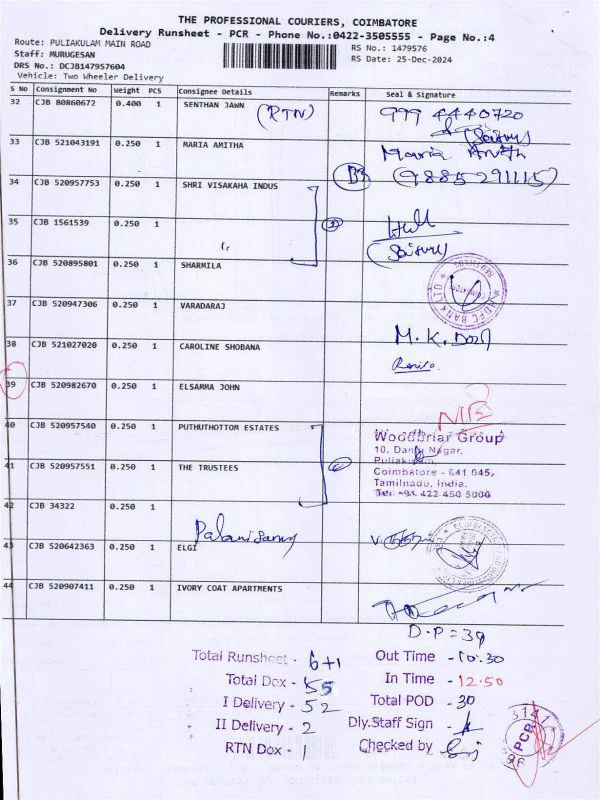 THE PROFESSIONAL COURIERS, COIMBATORE
Delivery Runsheet - PCR - Phone No.:0422-3505555 - Page No.:4
Route: PULIAKULAM MAIN ROAD
RS No.: 1479576
Staff: MURUGESAN
RS Date: 25-Dec-2024
DRS No.: DCJB147957604
Vehicle: Two Wheeler Delivery
S No Consignment No Weight PCS Consignee Details Remarks Seal & Signature
32 CJB 80860672 0.400 1 SENTHAN JAWN (RTN) 999 4440720
33 CJB 521043191 0.250 1 MARIA AMITHA Maria
(9885291115)
34 CJB 520957753 0.250 1 SHRI VISAKAHA INDUS
35 CJB 1561539 0.250 1
36 CJB 520895801 0.250 1 SHARMILA
HDFC BANK LTD
37 CJB 520947306 0.250 1 VARADARAJ
38 CJB 521027020 0.250 1 CAROLINE SHOBANA
39 CJB 520982670 0.250 1 ELSAMMA JOHN
40 CJB 520957540 0.250 1 PUTHUTHOTTOM ESTATES
Woodbriar Group
10, Nagar,
41 CJB 520957551 0.250 1 THE TRUSTEES
Coimbatore - 641 045,
Tamilnadu, India.
Tel: +91 422 450 5000
42 CJB 34322 0.250 1
Palanisamy
43 CJB 520642363 0.250 1 ELGI
44 CJB 520907411 0.250 1 IVORY COAT APARTMENTS
D.P = 39
Total Runsheet - 6+1 Out Time - 10.30
Total Dox - 55 In Time - 12.50
I Delivery - 52 Total POD - 30
II Delivery - 2 Dly.Staff Sign -
RTN Dox - 1 Checked by
PCR